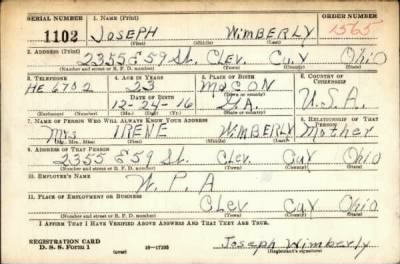 SERIAL NUMBER 1. NAME (Print) ORDER NUMBER
1102 JOSEPH WIMBERLY 1565
(First) (Middle) (Last)
2. ADDRESS (Print)
2355 E 59 St. Clev. Cuy Ohio
(Number and street or R. F. D. number) (Town) (County) (State)
3. TELEPHONE 4. AGE IN YEARS 5. PLACE OF BIRTH 6. COUNTRY OF CITIZENSHIP
HE 6702 23 MACON
DATE OF BIRTH (Town or county)
12-24-16 GA. U.S.A.
(Exchange) (No.) (Mo.) (Day) (Yr.) (State or country)
7. NAME OF PERSON WHO WILL ALWAYS KNOW YOUR ADDRESS RELATIONSHIP OF THAT PERSON
Mrs IRENE WIMBERLY Mother
(Mr., Mrs., Miss) (First) (Middle) (Last)
9. ADDRESS OF THAT PERSON
2355 E 59 St. Clev. Cuy Ohio
(Number and street or R. F. D. number) (Town) (County) (State)
10. EMPLOYER'S NAME
W. P. A
11. PLACE OF EMPLOYMENT OR BUSINESS
Clev Cuy Ohio
(Number and street or R. F. D. number) (Town) (County) (State)
I AFFIRM THAT I HAVE VERIFIED ABOVE ANSWERS AND THAT THEY ARE TRUE.
REGISTRATION CARD
D. S. S. Form 1 (over) 16-17105 Joseph Wimberly
(Registrant's signature)